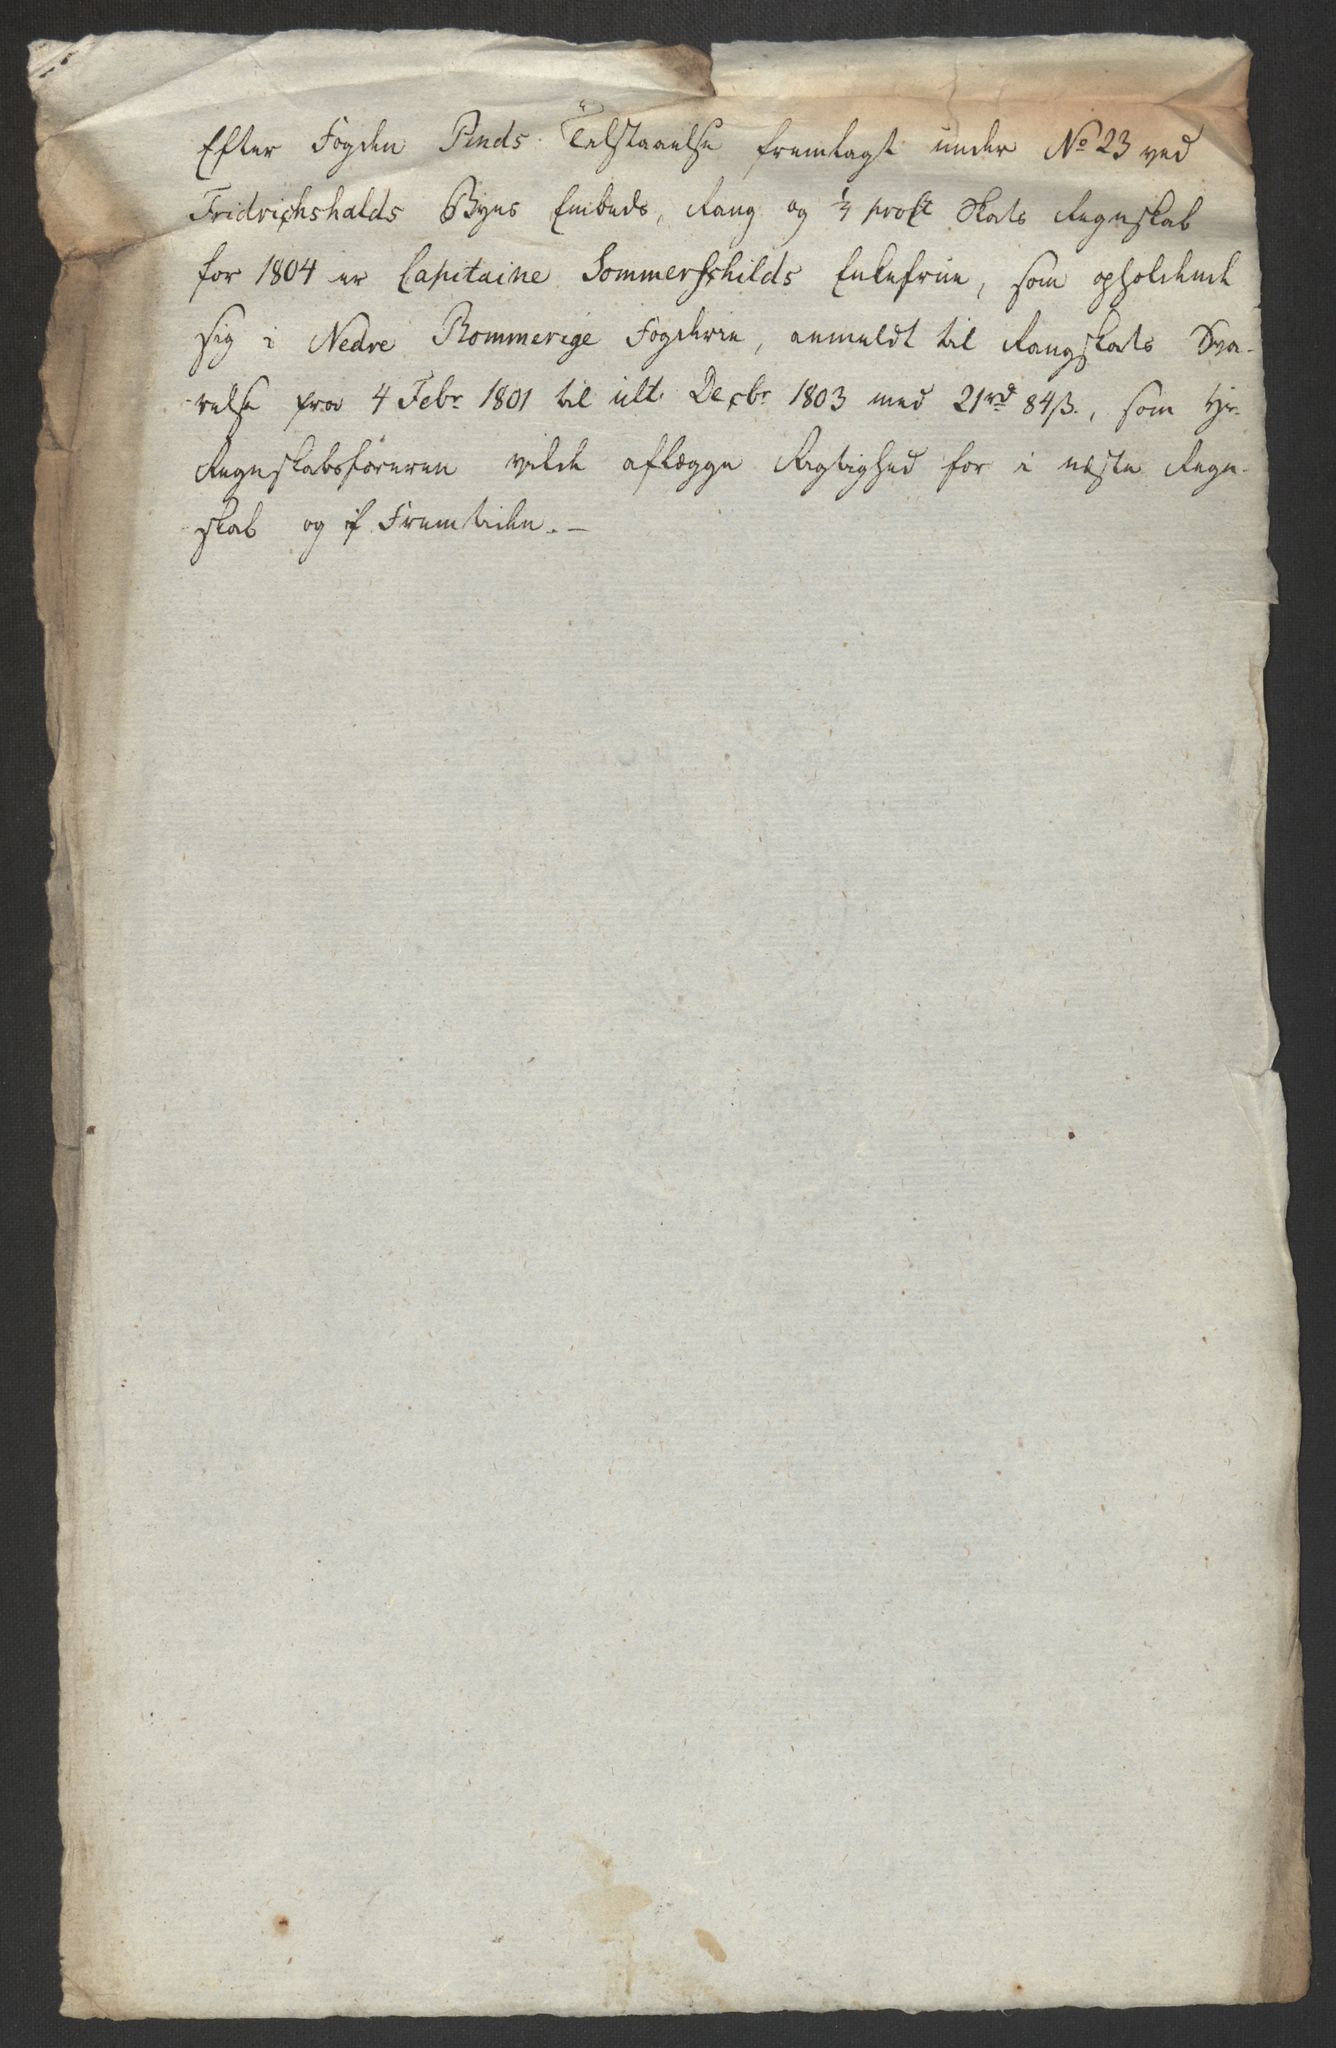 Efter Fogden Pinds Tilstaaelse fremlagt under No 23 ved
Fridrichshalds Byes Embeds, Rang og ¼ proCt Skats Regnskab
for 1804 er Capitaine Sommerschilds Enkefrue, som opholdende
sig i Nedre Rommerige Fogderie, anmeldt til Rangskats Sva-
relse fra 4 Febr 1801 til ult. Decbr 1803 med 21rd 84ß., som Hr
Regnskabsföreren vilde aflægge Rigtighed for i næste Regn-
skab og i Fremtiden. –